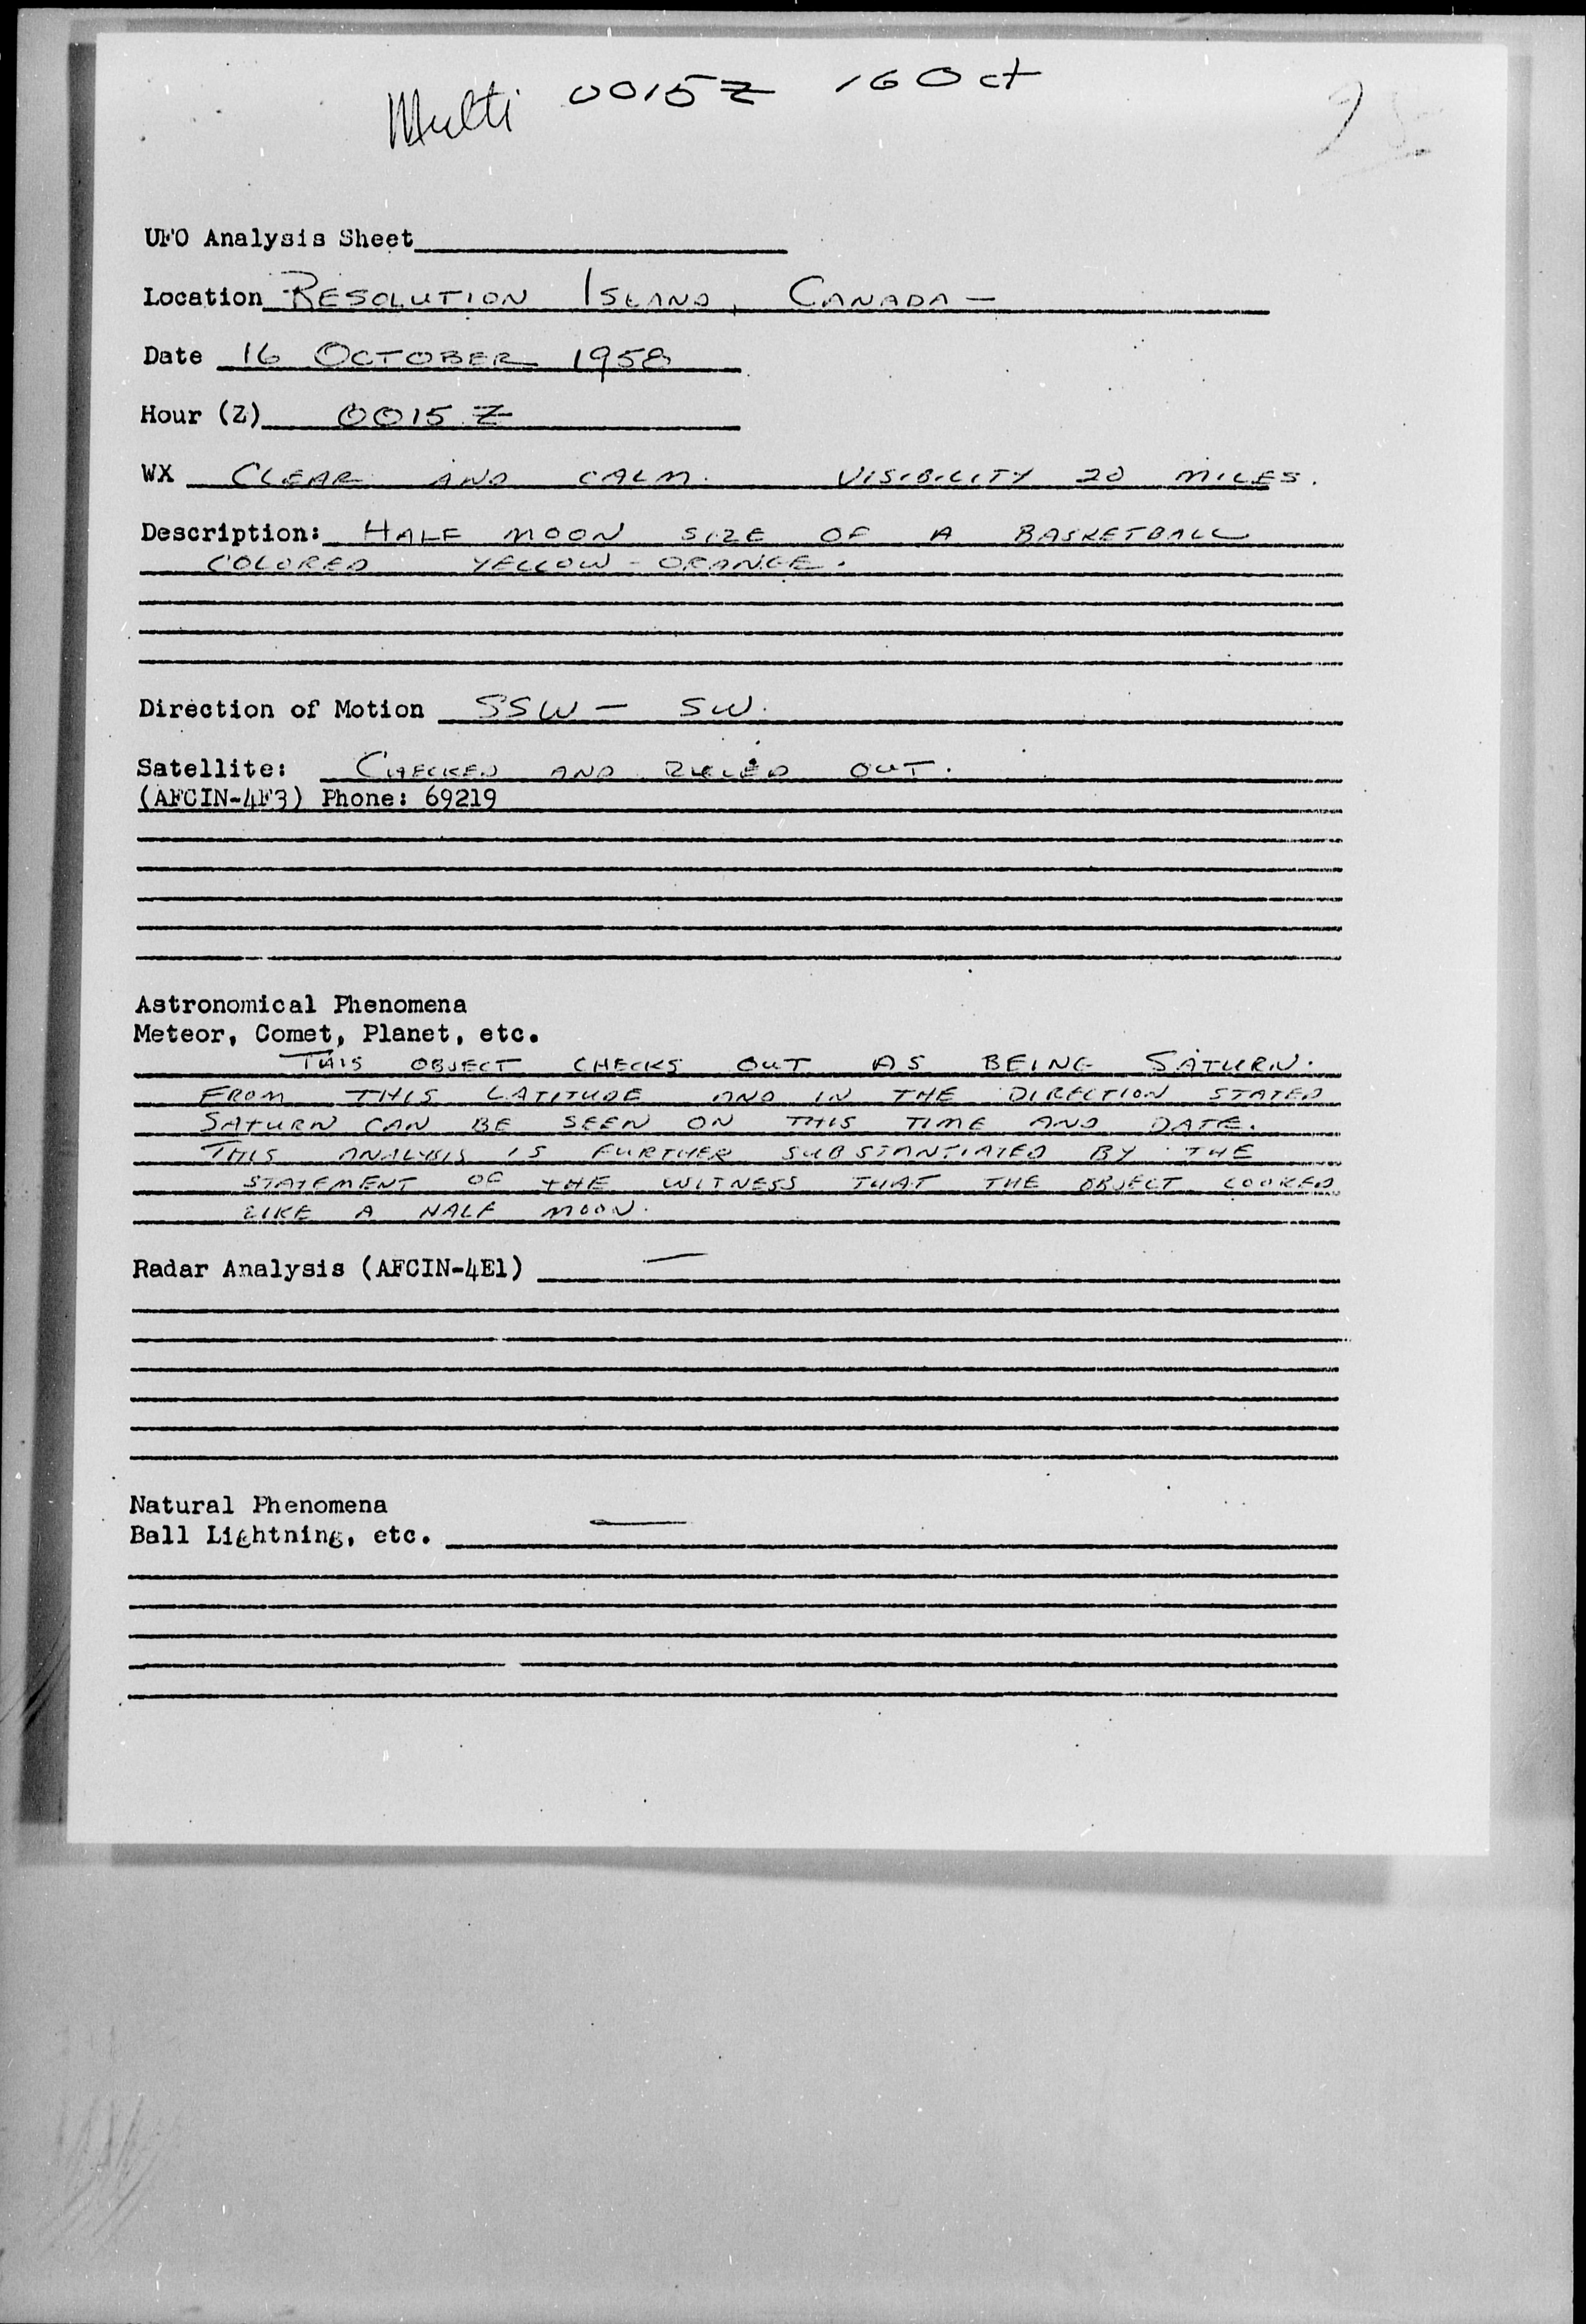 Multi 0015Z 16 Oct
UFO Analysis Sheet
Location RESOLUTION ISLAND, CANADA —
Date 16 OCTOBER 1958
Hour (Z) 0015 Z
WX CLEAR AND CALM. VISIBILITY 20 MILES.
Description: HALF MOON SIZE OF A BASKETBALL
COLORED YELLOW - ORANGE.
Direction of Motion SSW — SW.
Satellite: CHECKED AND RULED OUT.
(AFCIN-4F3) Phone: 69219
Astronomical Phenomena
Meteor, Comet, Planet, etc.
THIS OBJECT CHECKS OUT AS BEING SATURN.
FROM THIS LATITUDE AND IN THE DIRECTION STATED
SATURN CAN BE SEEN ON THIS TIME AND DATE.
THIS ANALYSIS IS FURTHER SUBSTANTIATED BY THE
STATEMENT OF THE WITNESS THAT THE OBJECT LOOKED
LIKE A HALF MOON.
Radar Analysis (AFCIN-4E1) —
Natural Phenomena
Ball Lightning, etc. —